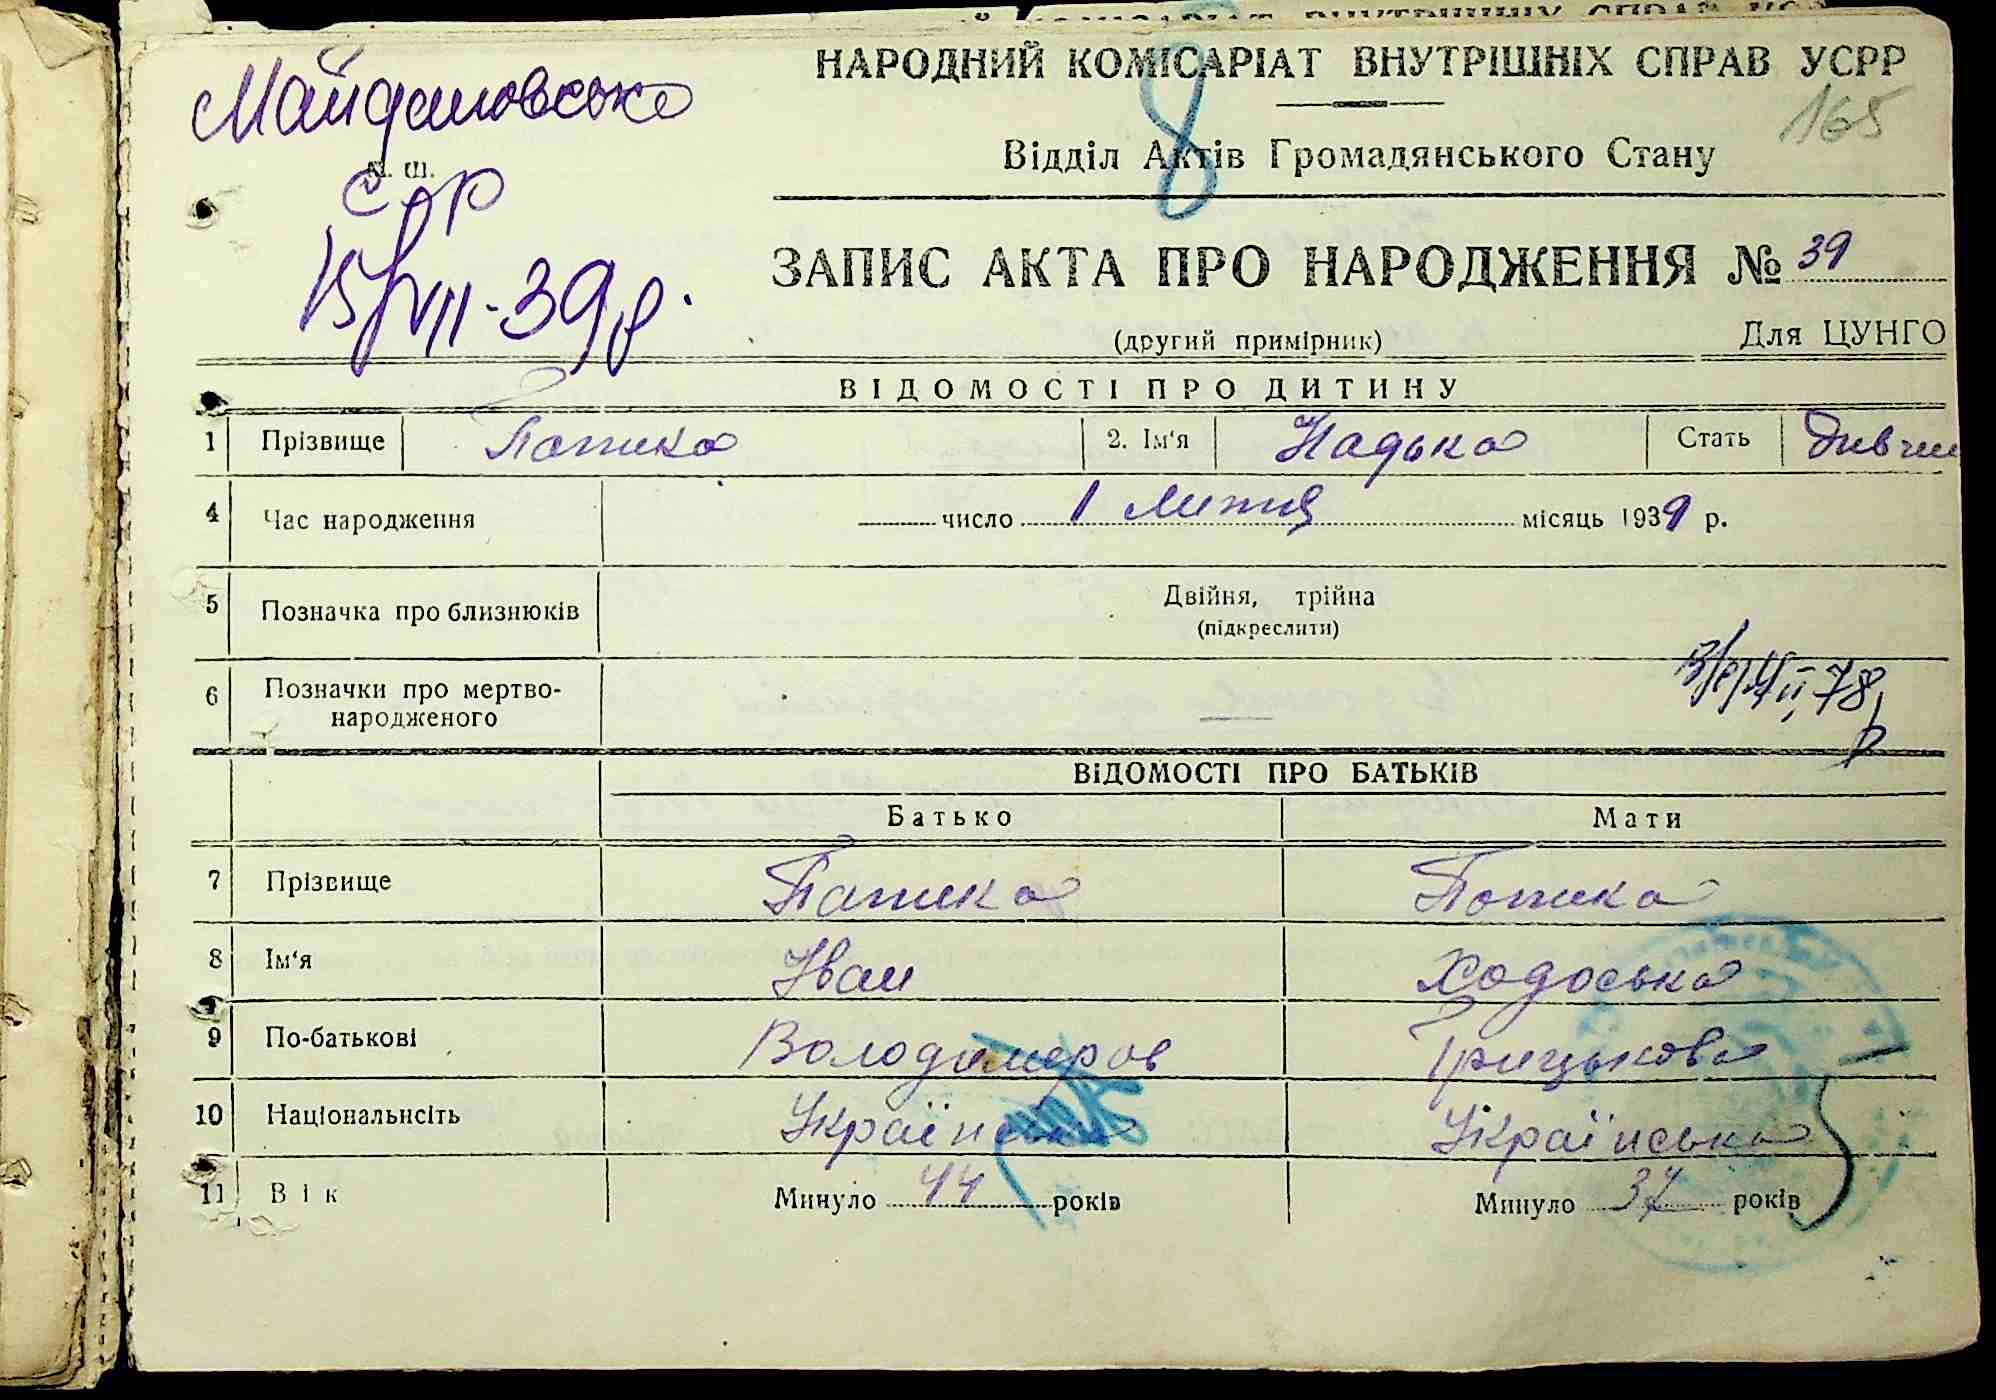 НАРОДНИЙ КОМІСАРІАТ ВНУТРІШНІХ СПРАВ УСРР
Майдановська
165
8
Відділ Актів Громадянського Стану
М. Ш.
С/Р
15/VII-39р.
ЗАПИС АКТА ПРО НАРОДЖЕННЯ № 39
(другий примірник) Для ЦУНГО
ВІДОМОСТІ ПРО ДИТИНУ
1 Прізвище Патика 2. Ім'я Надька Стать Дивчи
4 Час народження число 1 Липня місяць 1939 р.
5 Позначка про близнюків Двійня, трійна
(підкреслити)
6 Позначки про мертво-
народженого
ВІДОМОСТІ ПРО БАТЬКІВ
Батько Мати
7 Прізвище Патика Патика
8 Ім'я Іван Ходоська
9 По-батькові Володимеров Грицькова
10 Національнсіть Українська Українська
11 Вік Минуло 44 років Минуло 37 років